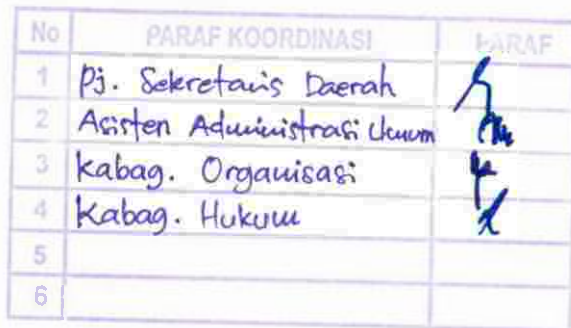 No PARAF KOORDINASI PARAF
1 Pj. Sekretaris Daerah
2 Asisten Administrasi Umum
3 Kabag. Organisasi
4 Kabag. Hukum
5
6